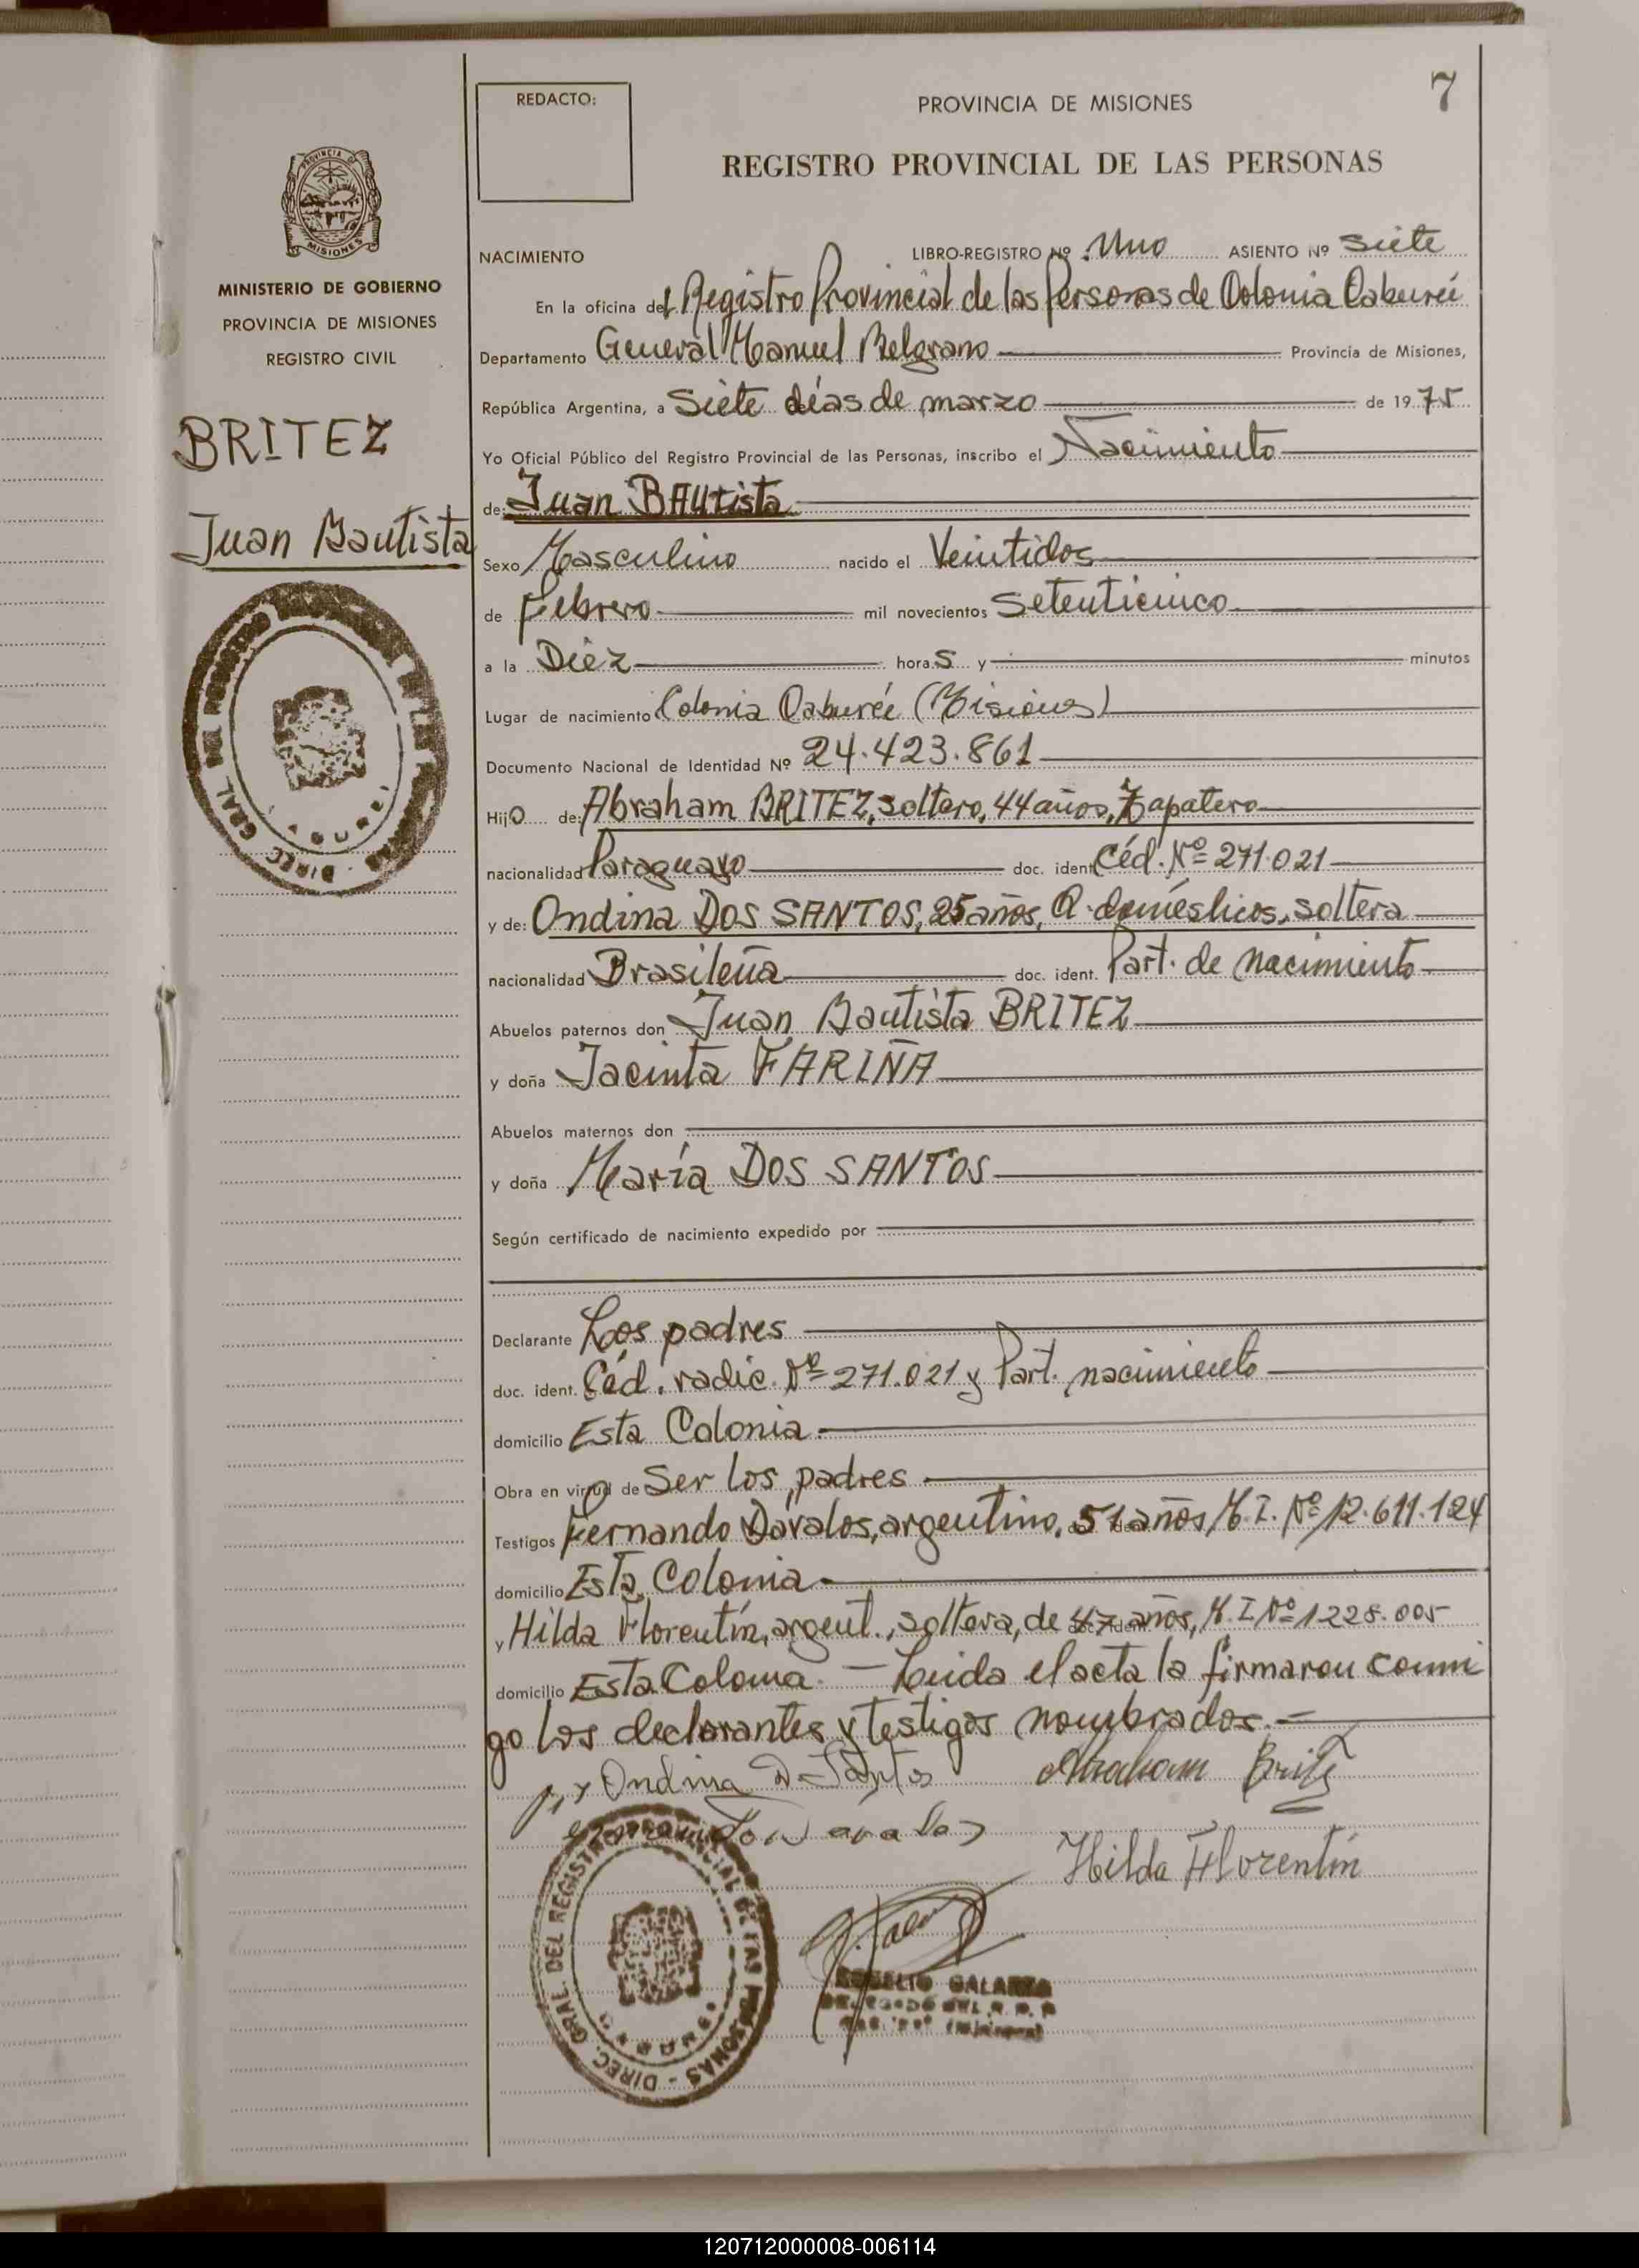 7
REDACTO:
PROVINCIA DE MISIONES
REGISTRO PROVINCIAL DE LAS PERSONAS
PROVINCIA DE
MISIONES
MINISTERIO DE GOBIERNO
PROVINCIA DE MISIONES
REGISTRO CIVIL
BRITEZ
Juan Bautista
DIREC. GRAL DEL REGISTRO
NACIMIENTO LIBRO-REGISTRO Nº Uno ASIENTO Nº Siete
En la oficina del Registro Provincial de las Personas de Colonia Caburéi
Departamento General Manuel Belgrano Provincia de Misiones,
República Argentina, a Siete días de marzo de 1975
Yo Oficial Público del Registro Provincial de las Personas, inscribo el Nacimiento
de: Juan BAutista
Sexo Masculino nacido el Veintidos
de Febrero mil novecientos Setenticinco
a la Diez horas y minutos
Lugar de nacimiento Colonia Caburéi (Misiones)
Documento Nacional de Identidad Nº 24.423.861
Hijo de: Abraham BRITEZ, soltero, 44 años, Zapatero
nacionalidad Paraguayo doc. ident. Céd. Nº 271.021
y de: Ondina DOS SANTOS, 25 años, Q. domésticos, soltera
nacionalidad Brasileña doc. ident. Part. de nacimiento
Abuelos paternos don Juan Bautista BRITEZ
y doña Jacinta FARIÑA
Abuelos maternos don
y doña María DOS SANTOS
Según certificado de nacimiento expedido por
Declarante Los padres
doc. ident. Céd. radic. Nº 271.021 y Part. nacimiento
domicilio Esta Colonia
Obra en virtud de Ser los padres
Testigos Fernando Davalos, argentino, 51 años, M.I. Nº 12.611.124
domicilio Esta Colonia
y Hilda Florentín, argent., soltera, de 47 años, M.I. Nº 1228.005
domicilio Esta Colonia. - Leida el acta la firmaron conmi
go los declarantes y testigos nombrados. =
Ondina D Santos Abraham Britez
Hilda Florentín
DIREC. GRAL DEL REGISTRO PROVINCIAL DE LAS PERSONAS
ROGELIO GALARZA
120712000008-006114